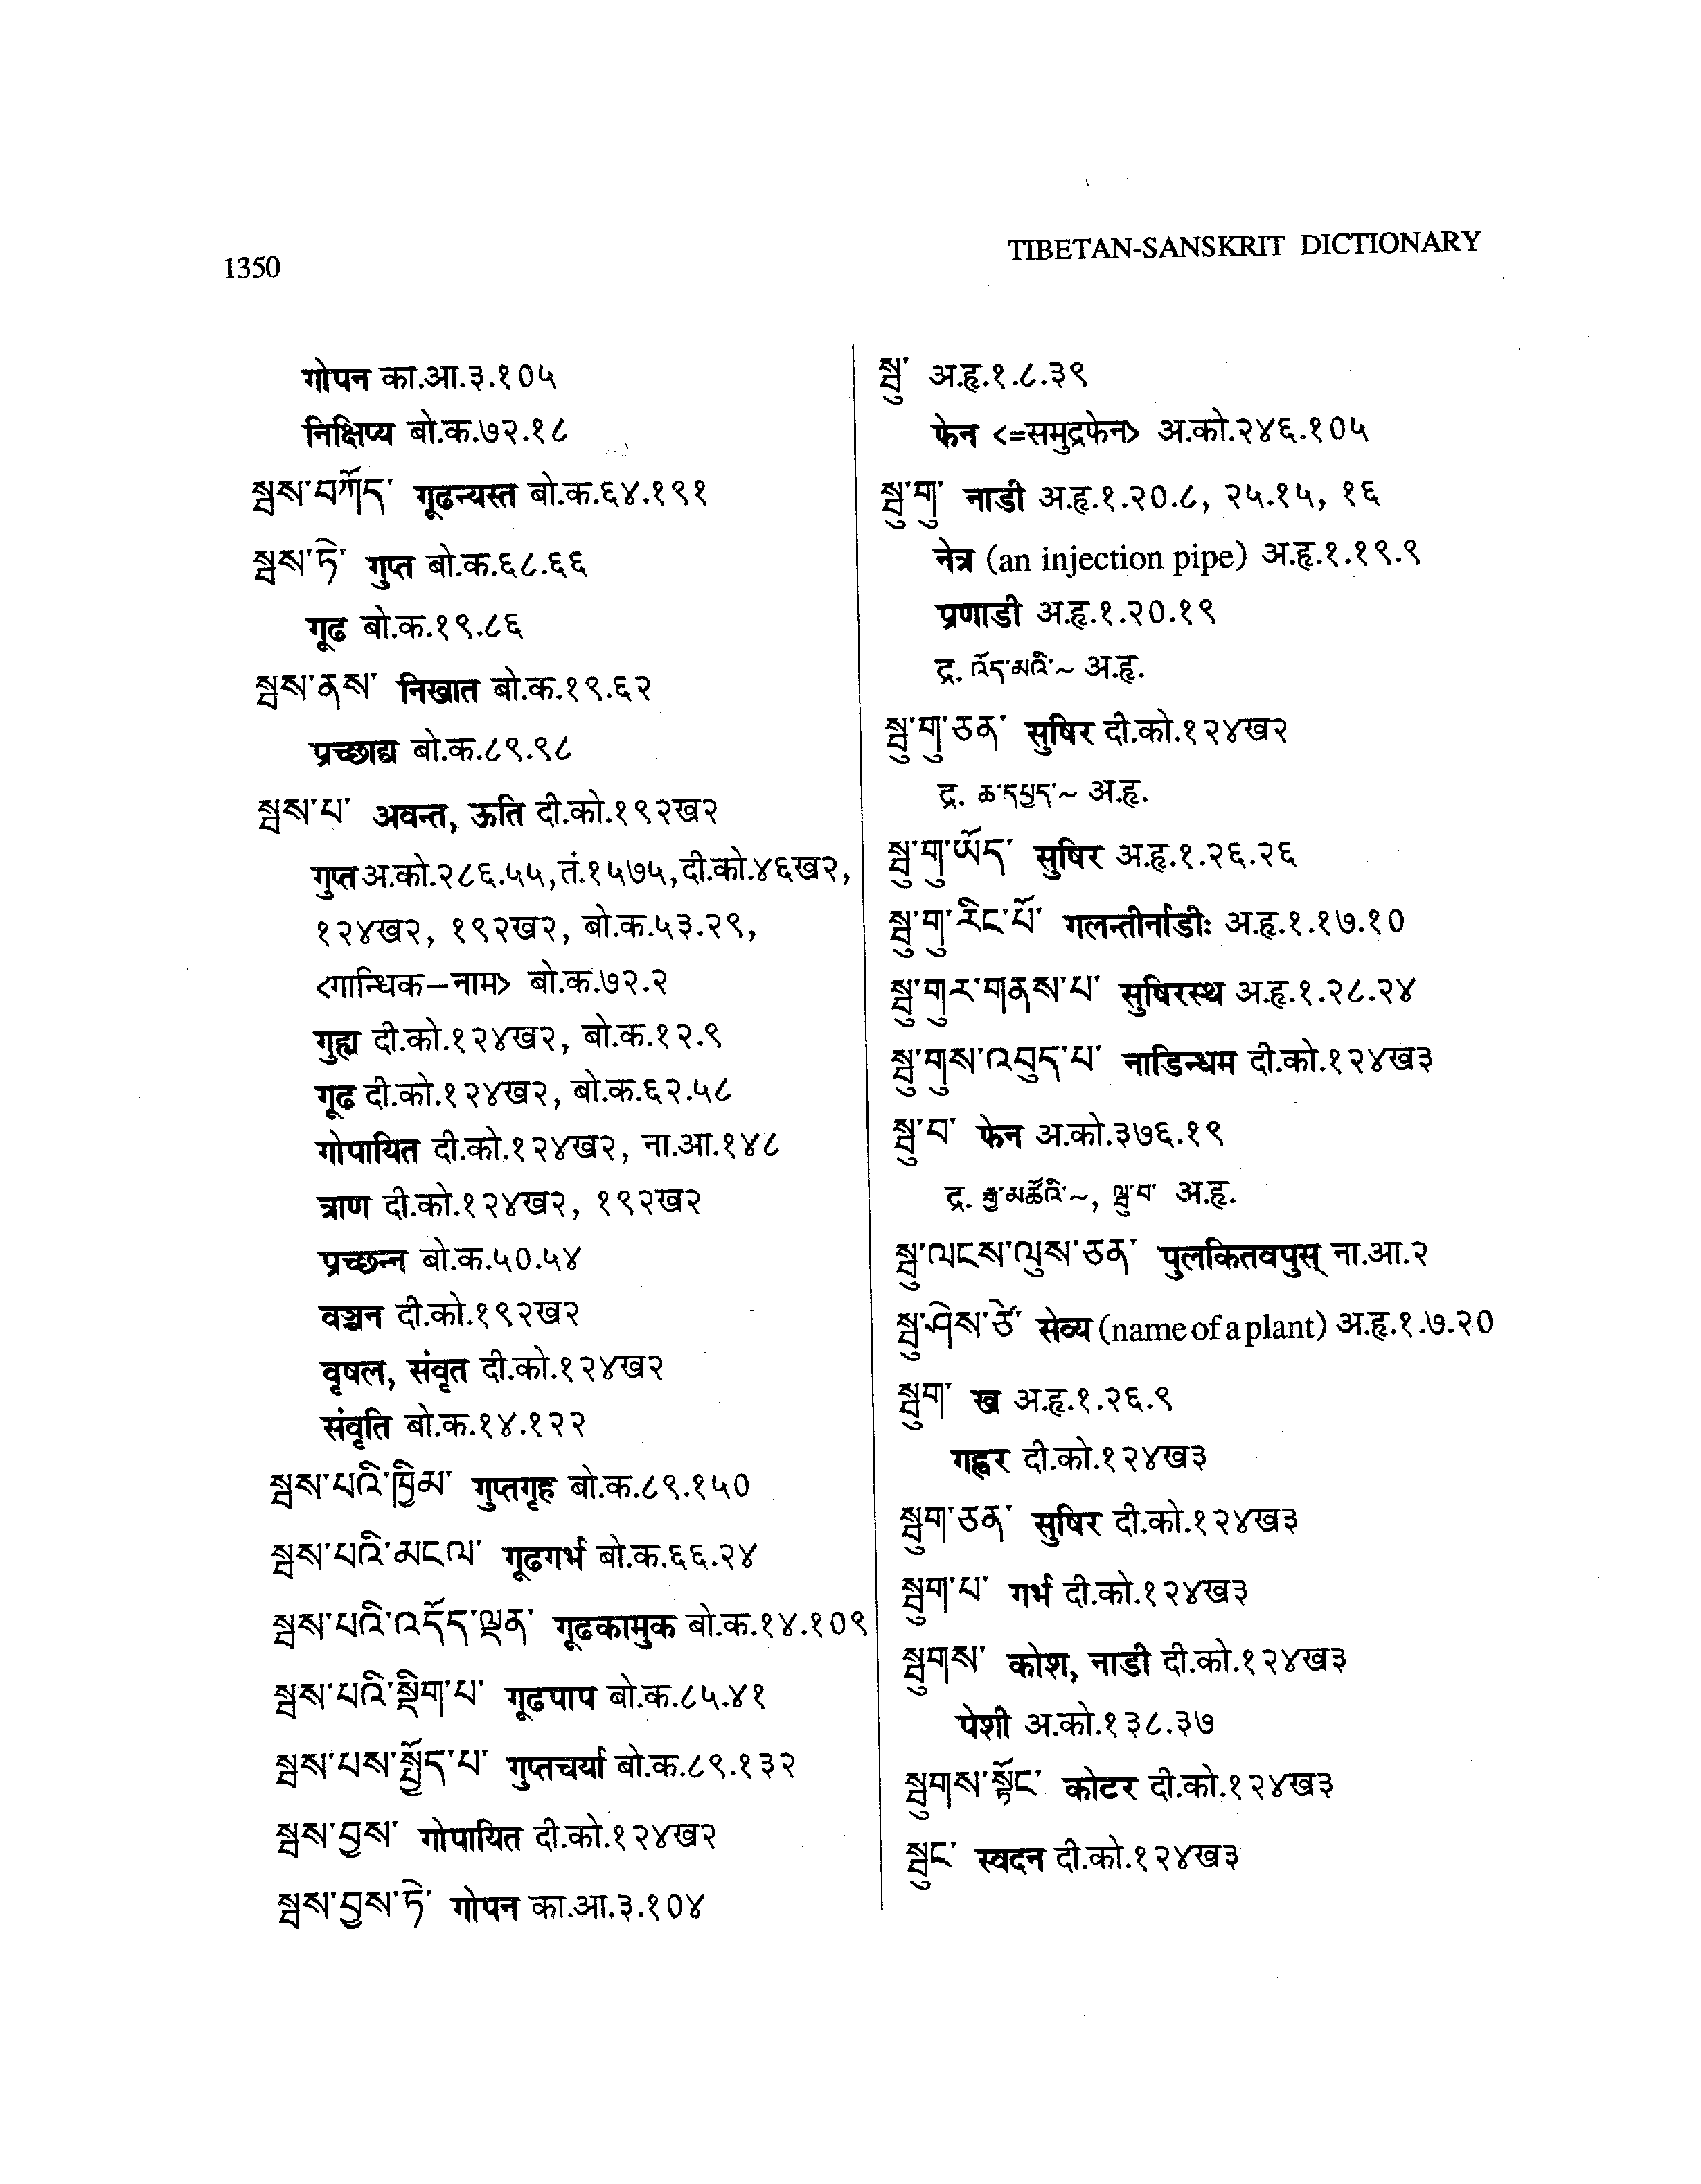 1350
TIBETAN-SANSKRIT DICTIONARY
गोपन का.आ.३.१०५
निक्षिप्य बो.क.७२.१८
སྦས་བཀོད་ गूढन्यस्त बो.क.६४.१९१
སྦས་ཏེ་ गुप्त बो.क.६८.६६
गूढ बो.क.१९.८६
སྦས་ནས་ निखात बो.क.१९.६२
प्रच्छाद्य बो.क.८९.९८
སྦས་པ་ अवन्त, ऊति दी.को.१९२ख२
गुप्त अ.को.२८६.५५, तं.१५७५, दी.को.४६ख२,
१२४ख२, १९२ख२, बो.क.५३.२९,
<गान्धिक–नाम> बो.क.७२.२
गुह्य दी.को.१२४ख२, बो.क.१२.९
गूढ दी.को.१२४ख२, बो.क.६२.५८
गोपायित दी.को.१२४ख२, ना.आ.१४८
त्राण दी.को.१२४ख२, १९२ख२
प्रच्छन्न बो.क.५०.५४
वञ्चन दी.को.१९२ख२
वृषल, संवृत दी.को.१२४ख२
संवृति बो.क.१४.१२२
སྦས་པའི་ཁྱིམ་ गुप्तगृह बो.क.८९.१५०
སྦས་པའི་མངལ་ गूढगर्भ बो.क.६६.२४
སྦས་པའི་འདོད་ལྡན་ गूढकामुक बो.क.१४.१०९
སྦས་པའི་སྡིག་པ་ गूढपाप बो.क.८५.४१
སྦས་པས་སྤྱོད་པ་ गुप्तचर्या बो.क.८९.१३२
སྦས་བྱས་ गोपायित दी.को.१२४ख२
སྦས་བྱས་ཏེ་ गोपन का.आ.३.१०४
སྦུ་ अ.हृ.१.८.३९
फेन <=समुद्रफेन> अ.को.२४६.१०५
སྦུ་གུ་ नाडी अ.हृ.१.२०.८, २५.१५, १६
नेत्र (an injection pipe) अ.हृ.१.१९.९
प्रणाडी अ.हृ.१.२०.१९
द्र. འོད་མའི་~ अ.हृ.
སྦུ་གུ་ཅན་ सुषिर दी.को.१२४ख२
द्र. ཆ་དཔྱད་~ अ.हृ.
སྦུ་གུ་ཡོད་ सुषिर अ.हृ.१.२६.२६
སྦུ་གུ་རིང་པོ་ गलन्तीर्नाडीः अ.हृ.१.१७.१०
སྦུ་གུར་གནས་པ་ सुषिरस्थ अ.हृ.१.२८.२४
སྦུ་གུས་འབུད་པ་ नाडिन्धम दी.को.१२४ख३
སྦུ་བ་ फेन अ.को.३७६.१९
द्र. རྒྱ་མཚོའི་~, ལྦུ་བ་ अ.हृ.
སྦུ་ལངས་ལུས་ཅན་ पुलकितवपुस् ना.आ.२
སྦུ་ཤེས་ཙེ་ सेव्य (name of a plant) अ.हृ.१.७.२०
སྦུག་ ख अ.हृ.१.२६.९
गह्वर दी.को.१२४ख३
སྦུག་ཅན་ सुषिर दी.को.१२४ख३
སྦུག་པ་ गर्भ दी.को.१२४ख३
སྦུགས་ कोश, नाडी दी.को.१२४ख३
पेशी अ.को.१३८.३७
སྦུགས་སྟོང་ कोटर दी.को.१२४ख३
སྦུང་ स्वदन दी.को.१२४ख३